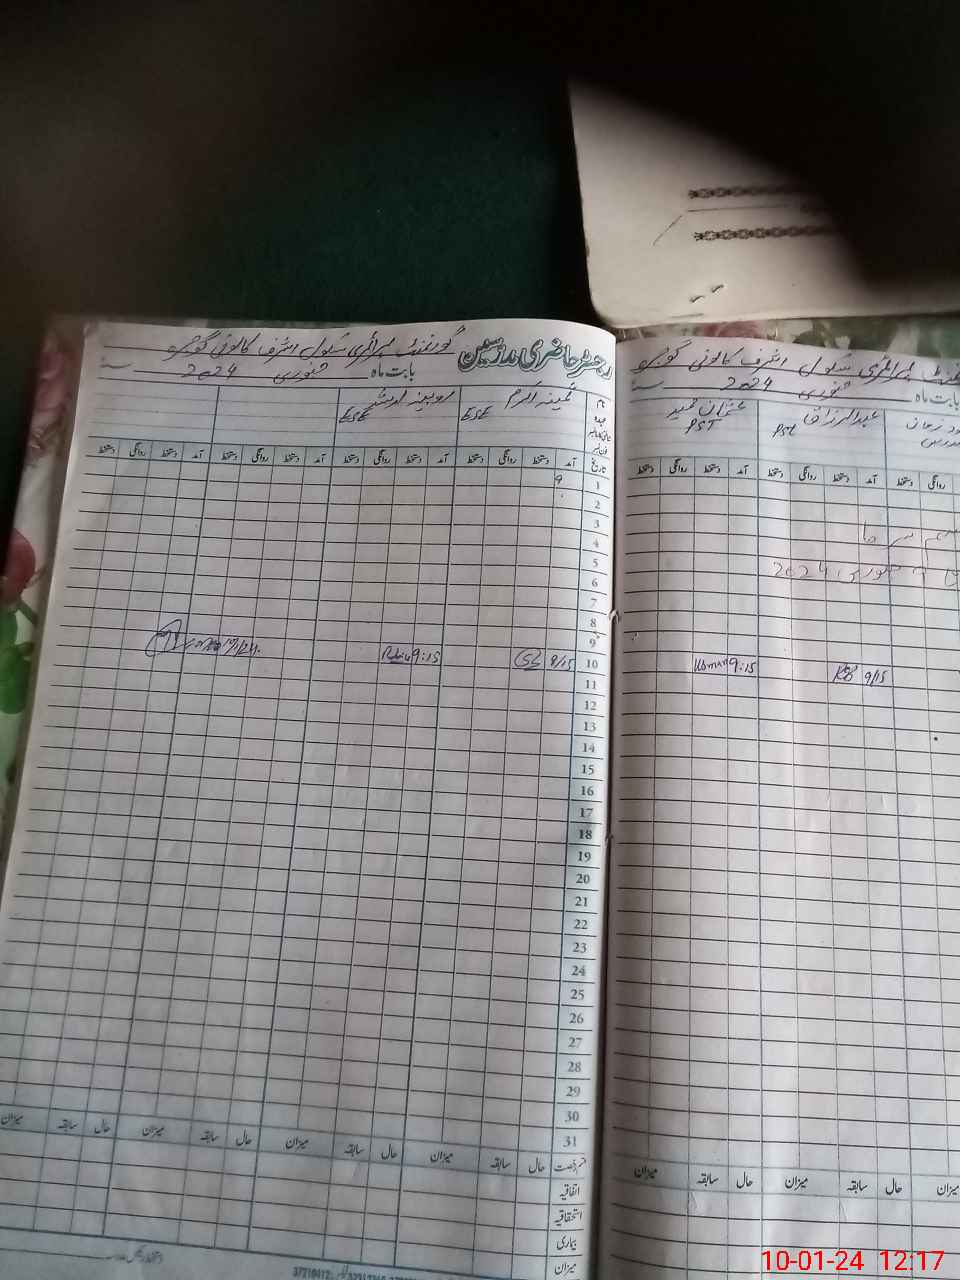 رجسٹر حاضری مدرسین گورنمنٹ پرائمری سکول اشرف کالونی
بابت ماہ جنوری 2024
نام
عہدہ
ثمینہ اکرم
ESE
روبینہ
ESE
تاریخ آمد دستخط روانگی دستخط آمد دستخط روانگی دستخط آمد دستخط روانگی دستخط آمد دستخط روانگی
1 9
2
3
4
5
6
7
8
9
10 9/15 9:15
11
12
13
14
15
16
17
18
19
20
21
22
23
24
25
26
27
28
29
30
31
حال سابقہ میزان حال سابقہ میزان حال سابقہ میزان حال سابقہ میزان
اتفاقیہ
استحقاقیہ
بیماری
میزان
پرائمری سکول اشرف کالونی
بابت ماہ جنوری 2024
عبدالرزاق
PST
عثمان حمید
PST
روانگی دستخط آمد دستخط روانگی دستخط آمد دستخط روانگی دستخط
جنوری 2024
9/15 Usman 9:15
میزان حال سابقہ میزان حال سابقہ میزان
10-01-24 12:17